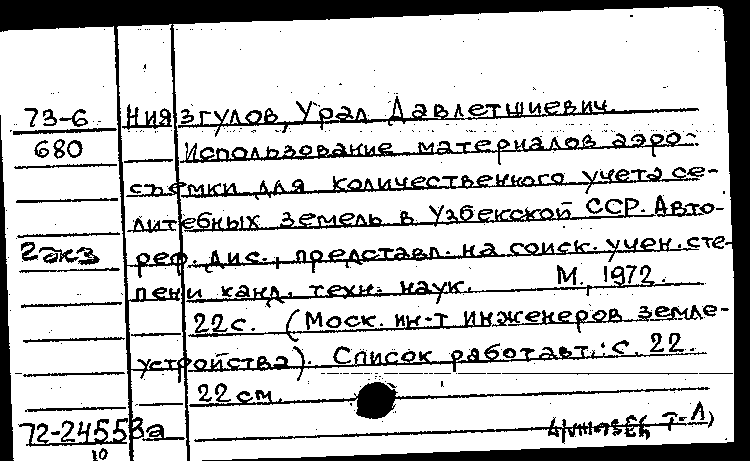 73-6 Ниязгулов, Урал Давлетшиевич.
680 Использование материалов аэро-
съемки для количественного учета се-
литебных земель в Узбекской ССР. Авто-
2 экз реф. дис., представл. на соиск. учен. сте-
пени канд. техн. наук. М., 1972.
22 с. (Моск. ин-т инженеров земле-
устройства). Список работ авт.: с. 22.
22 см.
72-24553а Т-Л)
10